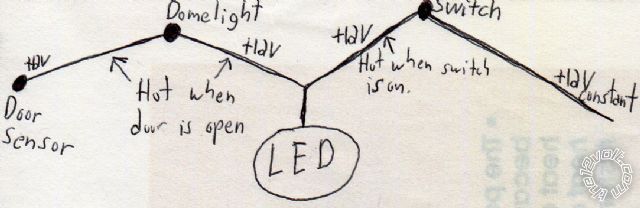 Domelight
Switch
+12V
+12V
+12V
Hot when switch
is on.
+12V
constant
Hot when
door is open
Door
sensor
LED
• The p
becca
the12volt.com